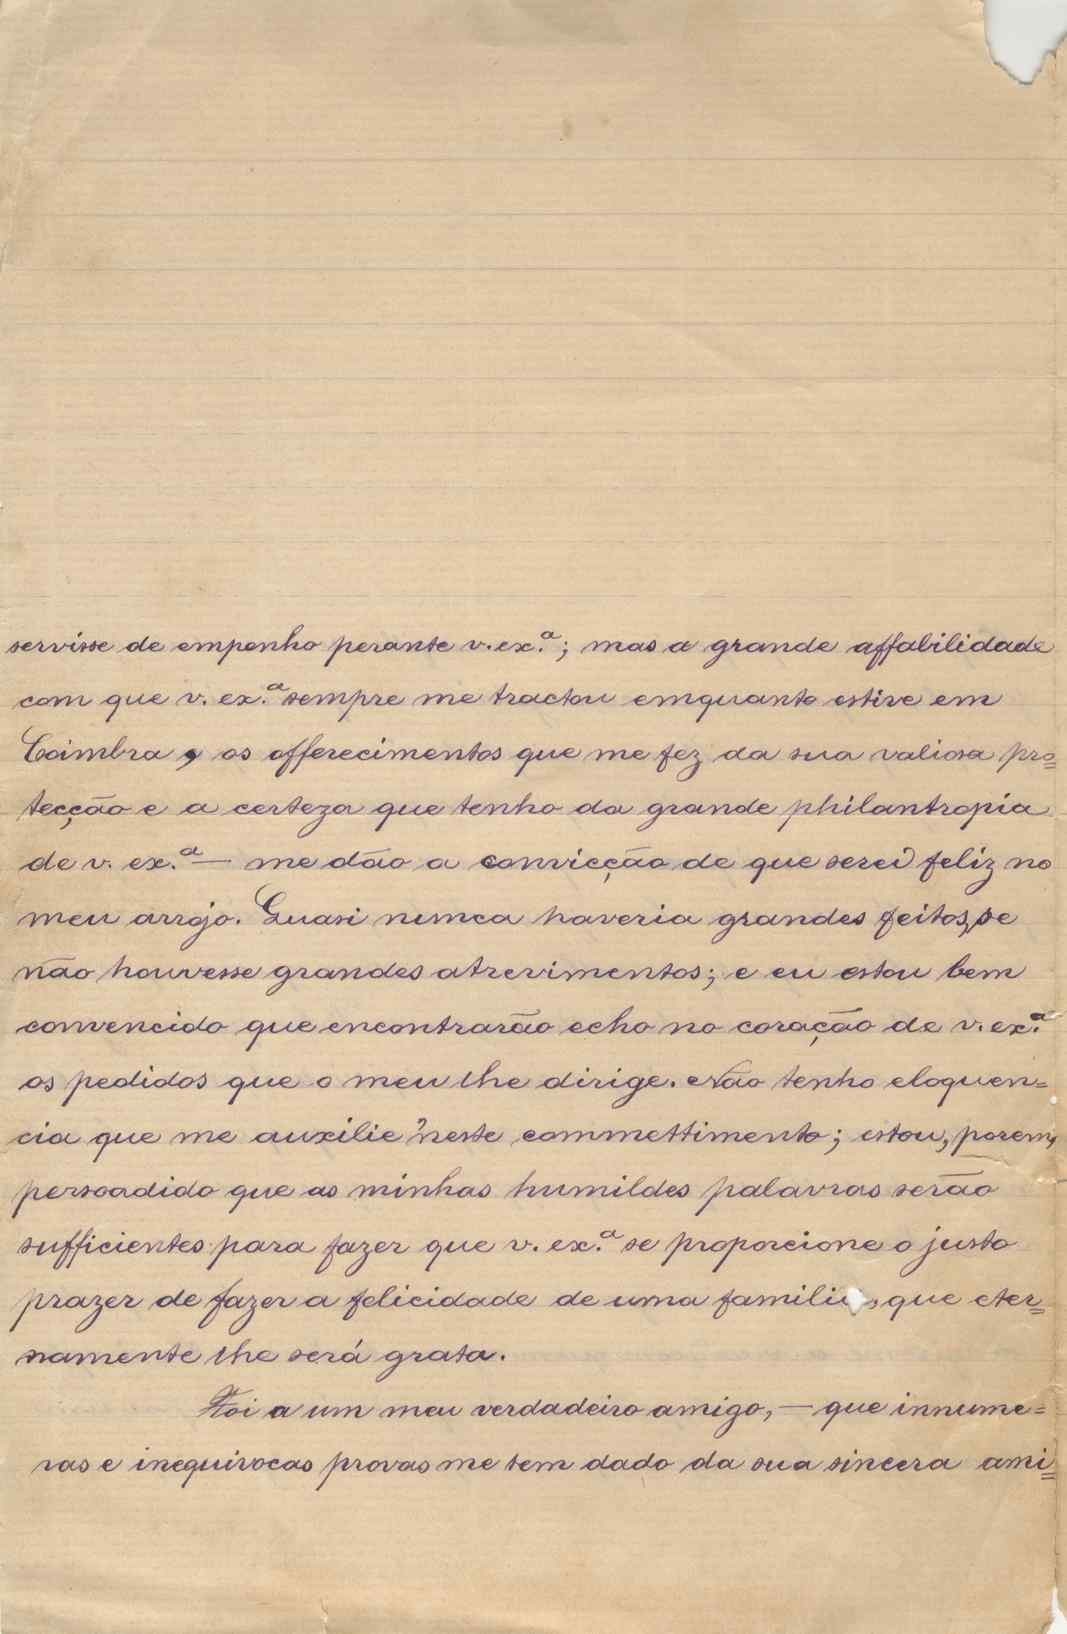 servisse de empenho perante v. ex.ª; mas a grande affabilidade
com que v. ex.ª sempre me tractou emquanto estive em
Coimbra, os offerecimentos que me fez da sua valiosa pro=
tecção e a certeza que tenho da grande philantropia
de v. ex.ª — me dão a convicção de que serei feliz no
meu arrojo. Quasi nunca haveria grandes feitos, se
não houvesse grandes atrevimentos; e eu estou bem
convencido que encontrarão echo no coração de v. ex.ª
os pedidos que o meu lhe dirige. Não tenho eloquen=
cia que me auxilie n'este commettimento; estou, porem,
persoadido que as minhas humildes palavras serão
sufficientes para fazer que v. ex.ª se proporcione o justo
prazer de fazer a felicidade de uma familia, que eter=
namente lhe será grata.
Foi a um meu verdadeiro amigo, — que innume=
ras e inequivocas provas me tem dado da sua sincera ami=